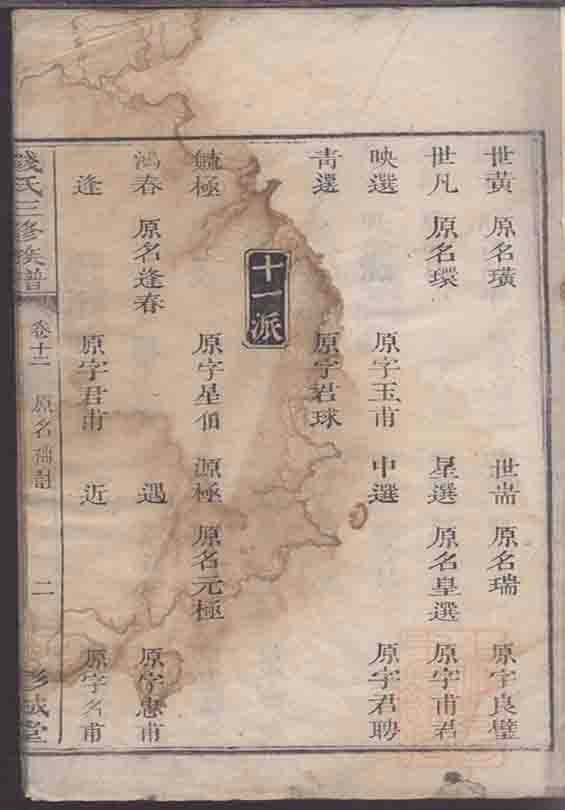 世黄 原名璜 世耑 原名瑞 原字良璧
世凡 原名環 星選 原名皇選 原字甫君
映選 原字玉甫 中選 原字君聘
青選 原字君球
十一派
毓極 原字星伯 源極 原名元極
鴻春 原名逢春 遇 原字惠甫
逢 原字君甫 近 原字名甫
錢氏三修族譜 卷十二 原名 二 彭城堂